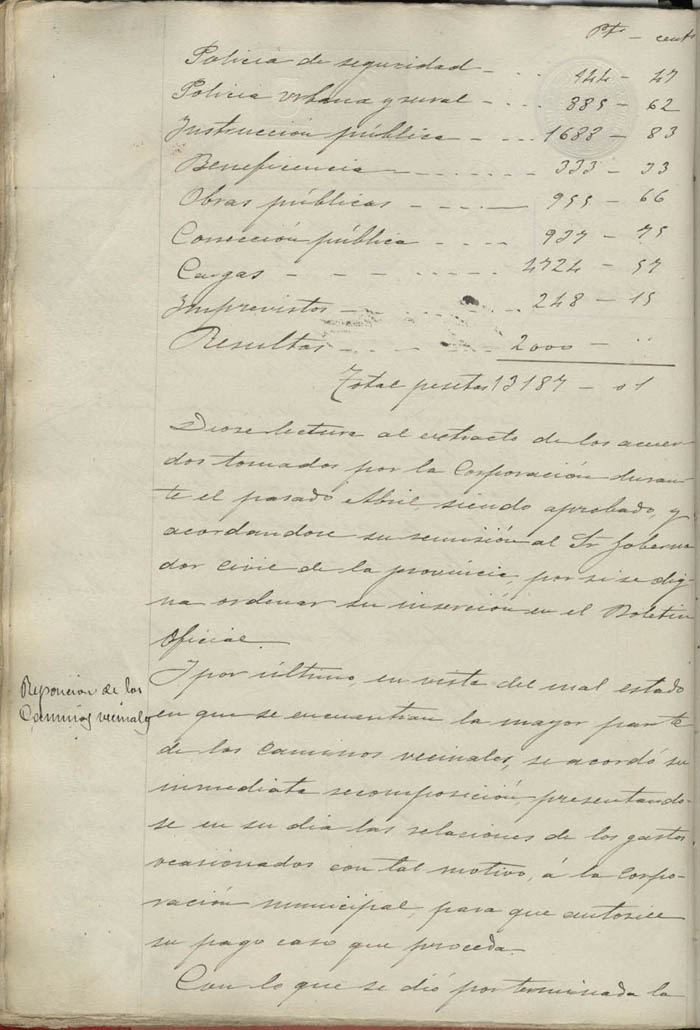 Pts - cents
Policia de seguridad - . . 144 - 27
Policia urbana y rural - . . . 885 - 62
Instrucción pública - . . . 1688 - 83
Beneficencia - . . . 333 - 33
Obras públicas - . . . 955 - 66
Corrección pública - . . . 937 - 75
Cargas - . . . 4724 - 57
Imprevistos - . . . 248 - 15
Resultas - . . . 2000 - ..
Total pesetas 13187 - 01
Diose lectura al extracto de los acuer
dos tomados por la Corporación duran
te el pasado Abril siendo aprobado, y
acordandose su remisión al Sr Goberna
dor civil de la provincia, por si se dig
na ordenar su inserción en el Boletin
Oficial.
Reposición de los
Caminos vecinales
I por último, en vista del mal estado
en que se encuentran la mayor parte
de los caminos vecinales, se acordó su
inmediata recomposición, presentando
se en su dia las relaciones de los gastos
ocasionados con tal motivo, á la Corpo-
ración municipal, para que autorice
su pago caso que proceda.
Con lo que se dió por terminada la